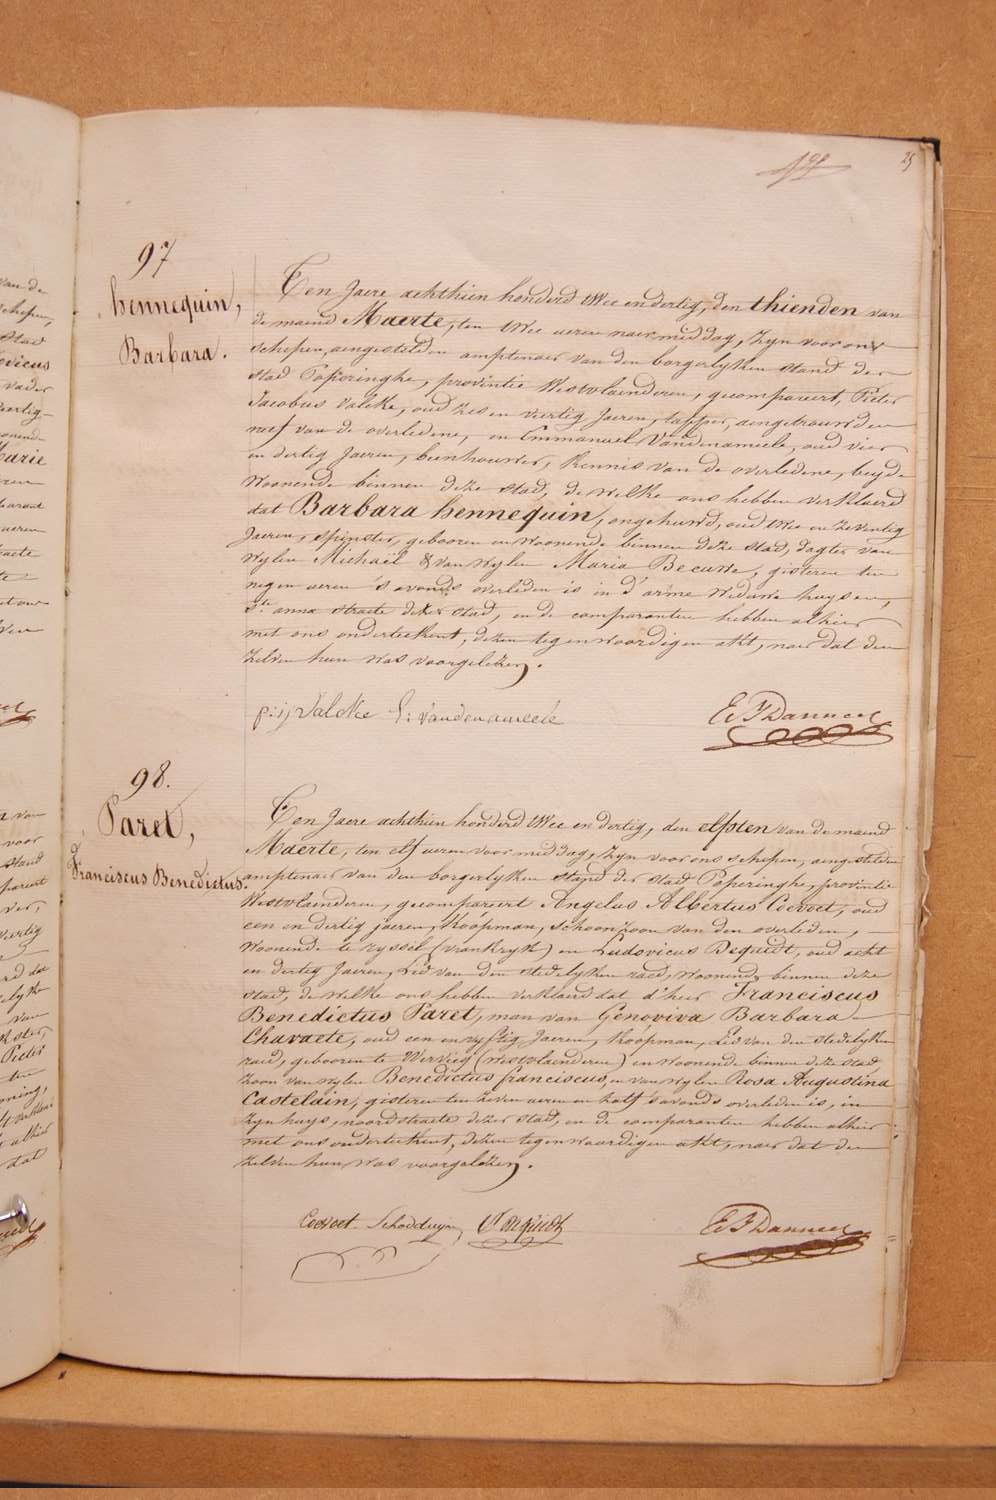 25
97
hennequin,
Barbara.
Ten Jaere achthien honderd twee en dertig, den thienden van
de maend Maerte, ten twee ueren naer middag, Zyn voor ons
schepen, aengestelden amptenaer van den borgerlyken stand der
stad Poperinghe, provintie Westvlaenderen, gecompareert, Pieter
Jacobus Valcke, oud zes en viertig Jaeren, tapper, aengetrouwden
neef van de overledene, en Emmanuel Vandenameele, oud vier
en dertig Jaeren, beenhouwer, Kennis van de overledene, beyde
Woonende binnen deze stad, de welke ons hebben verklaerd
dat Barbara hennequin, ongehuwd, oud twee en zeventig
Jaeren, spinster, gebooren en woonende binnen deze stad, dogter van
wylen Michaël & van wylen Maria Becuwe, gisteren ten
negen ueren 's avonds overleden is in d' arme Weduwe huysen,
Ste. anna straete dezer stad, en de comparanten hebben alhier
met ons onderteekent, dezen tegenwoordigen akt, naer dat den
zelven hun was voorgelezen.
p: ij Valcke E: Vandenameele
E F Danneel
98.
Paret,
Franciscus Benedictus.
Ten Jaere achthien honderd twee en dertig, den elfsten van de maend
Maerte, ten elf ueren voor middag, Zyn voor ons schepen, aengestelden
amptenaer van den borgerlyken stand der stad Poperinghe, provintie
Westvlaenderen, gecompareert Angelus Albertus Coevoet, oud
een en dertig jaeren, Koopman, schoonzoon van den overleden,
Woonende te ryssel (vrankryk) en Ludovicus Dequidt, oud acht
en dertig Jaeren, Lid van den stedelyken raed, woonende binnen deze
stad, de welke ons hebben verklaerd dat d'heer Franciscus
Benedictus Paret, man van Genoviva Barbara
Chavaete, oud een en vyftig Jaeren, Koopman, Lid van den stedelyken
raed, gebooren te Wervicq (Westvlaenderen) en woonende binnen deze stad
zoon van wylen Benedictus franciscus, en van wylen Rosa Augustina
Castelain, gisteren ten zeven ueren en half s'avonds overleden is, in
Zyn huys, noordstraete dezer stad, en de comparanten hebben alhier
met ons onderteekent, dezen tegenwoordigen akt, naer dat den
zelven hun was voorgelezen.
Coevoet-Schodduyn L Dequidt
E F Danneel